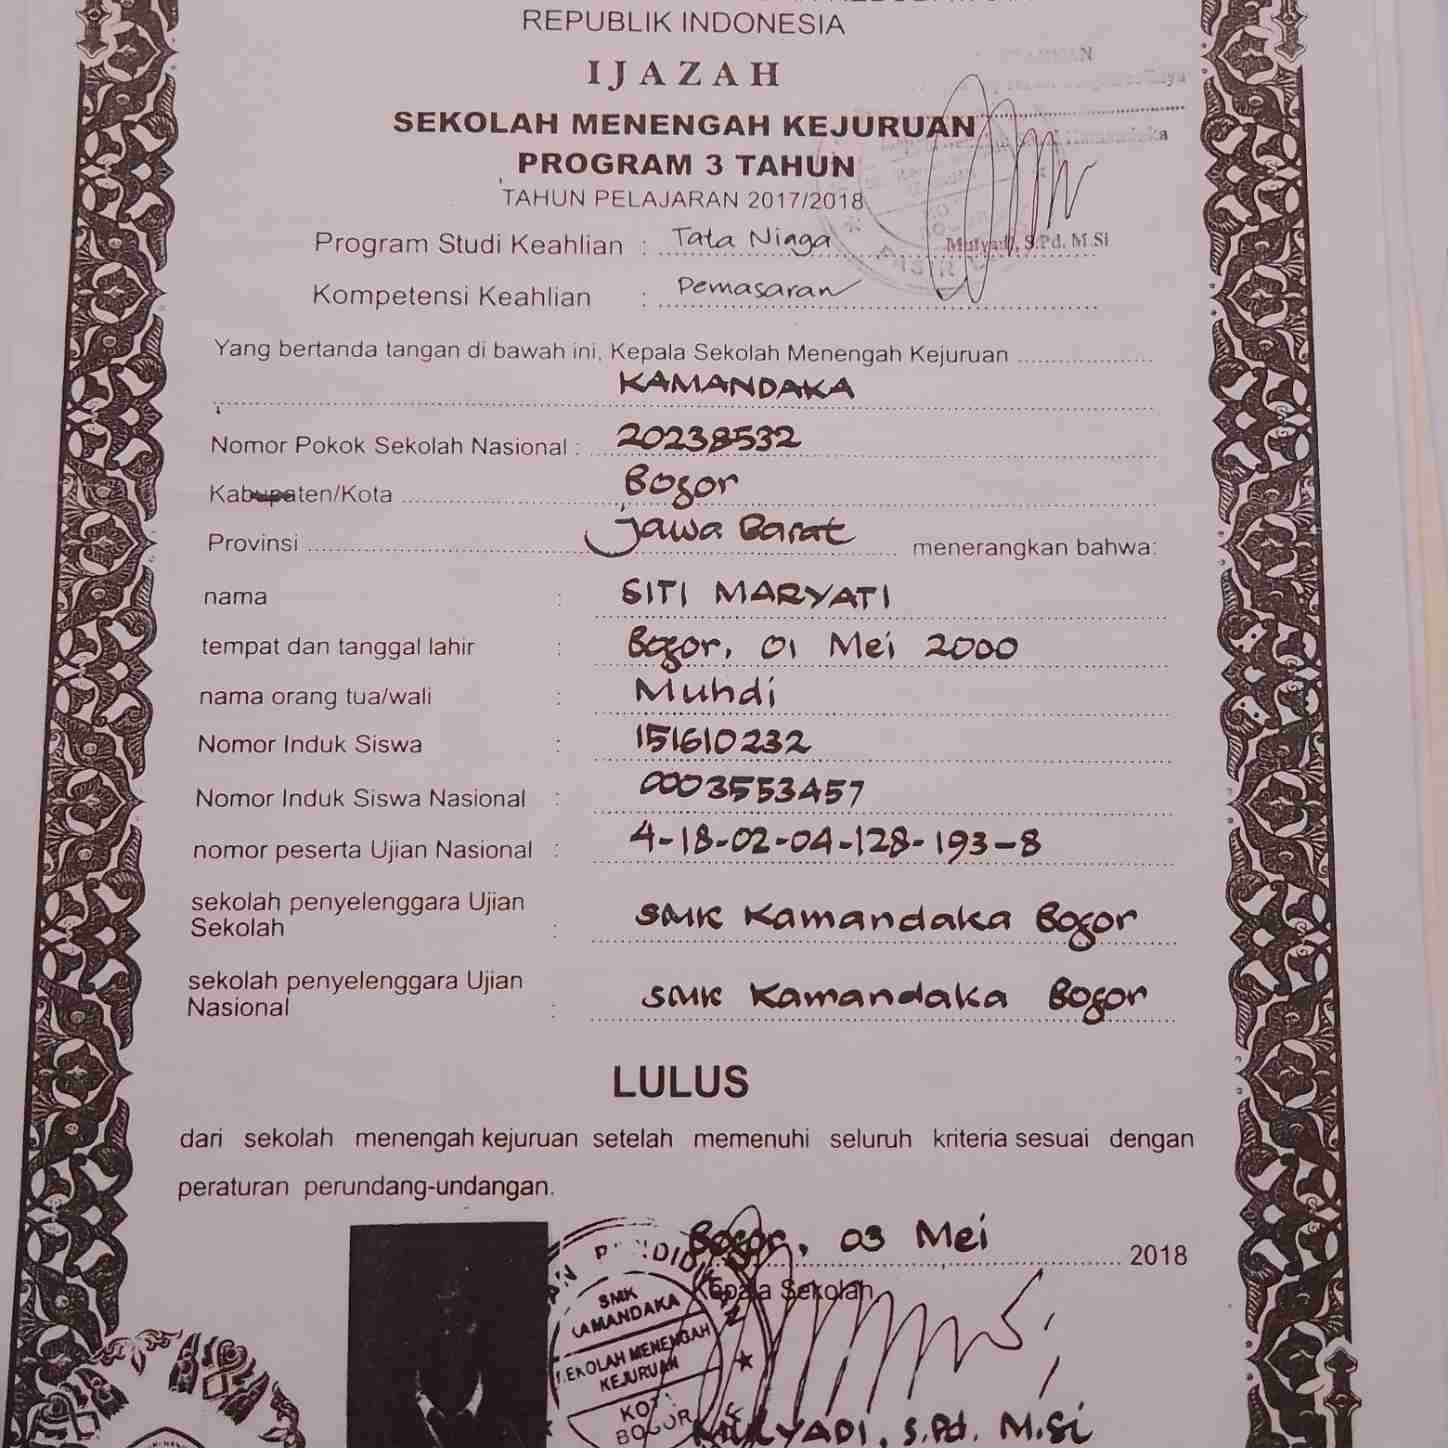 REPUBLIK INDONESIA
IJAZAH
SEKOLAH MENENGAH KEJURUAN
PROGRAM 3 TAHUN
TAHUN PELAJARAN 2017/2018
Program Studi Keahlian : Tata Niaga
Mulyadi, S.Pd. M.Si
Kompetensi Keahlian : Pemasaran
Yang bertanda tangan di bawah ini, Kepala Sekolah Menengah Kejuruan
KAMANDAKA
Nomor Pokok Sekolah Nasional : 20238532
Kabupaten/Kota Bogor
Provinsi Jawa Barat menerangkan bahwa:
nama : SITI MARYATI
tempat dan tanggal lahir : Bogor, 01 Mei 2000
nama orang tua/wali : Muhdi
Nomor Induk Siswa : 151610232
Nomor Induk Siswa Nasional : 0003553457
nomor peserta Ujian Nasional : 4-18-02-04-128-193-8
sekolah penyelenggara Ujian
Sekolah : SMK Kamandaka Bogor
sekolah penyelenggara Ujian
Nasional : SMK Kamandaka Bogor
LULUS
dari sekolah menengah kejuruan setelah memenuhi seluruh kriteria sesuai dengan
peraturan perundang-undangan.
Bogor, 03 Mei 2018
Kepala Sekolah
SMK
KAMANDAKA
SEKOLAH MENENGAH
KEJURUAN
KOTA
BOGOR
MULYADI, S.Pd. M.Si